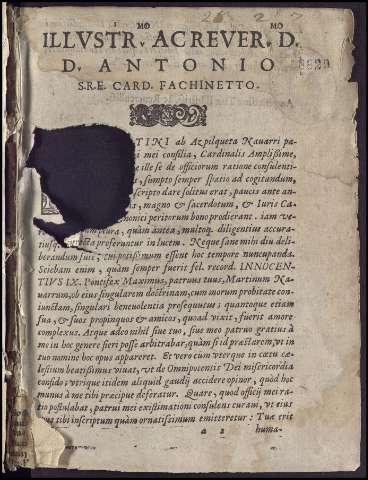 ILLVSTR. AC REVER. D.
IMO MO
D. ANTONIO
S.R.E. CARD. FACHINETTO.
TINI ab Azpilqueta Nauarri pa-
i mei consilia, Cardinalis Amplissime,
ille se de officiorum ratione consulenti-
, sumpto semper spatio ad cogitandum,
scripto dare solitus erat, paucis ante an-
, magno & sacerdotum, & Iuris Ca-
nonici peritorum bono prodierant. iam ve-
plura, quàm antea, multoq. diligentius accura-
tiusq. proferuntur in lucem. Neque sane mihi diu deli-
berandum fuit; cui potissimum essent hoc tempore nuncupanda.
Sciebam enim, quàm semper fuerit fel. record. INNOCEN-
TIVS IX. Pontifex Maximus, patruus tuus, Martinum Na-
uarrum, ob eius singularem doctrinam, cum morum probitate con-
iunctam, singulari beneuolentia prosequutus; quantoque etiam
sua, & suos propinquos & amicos, quoad vixit, fuerit amore
complexus. Atque adeo nihil siue tuo, siue meo patruo gratius à
me in hoc genere fieri posse arbitrabar, quàm si id praestarem, vt in
tuo nomine hoc opus appareret. Et vero cùm vterque in coetu cae-
lestium beatissimus viuat, vt de Omnipotentis Dei misericordia
confido; vtrique itidem aliquid gaudij accidere opinor, quòd hoc
munus à me tibi praecipue deferatur. Quare, quod officij mei ra-
tio postulabat, patrui mei existimationi consulens curaui, vt eius
opus tibi inscriptum quàm ornatissimum emitteretur: Tuae erit
a 2 huma-